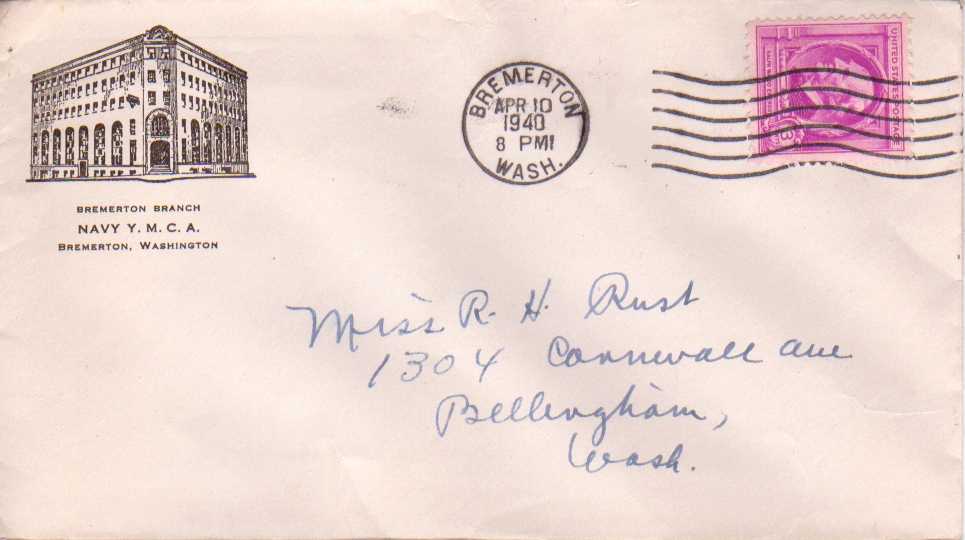 BREMERTON BRANCH
NAVY Y. M. C. A.
BREMERTON, WASHINGTON
BREMERTON
APR 10
1940
8 PM
WASH.
UNITED STATES POSTAGE
3
Miss R. H. Rust
1304 Cornwall ave
Bellingham,
Wash.